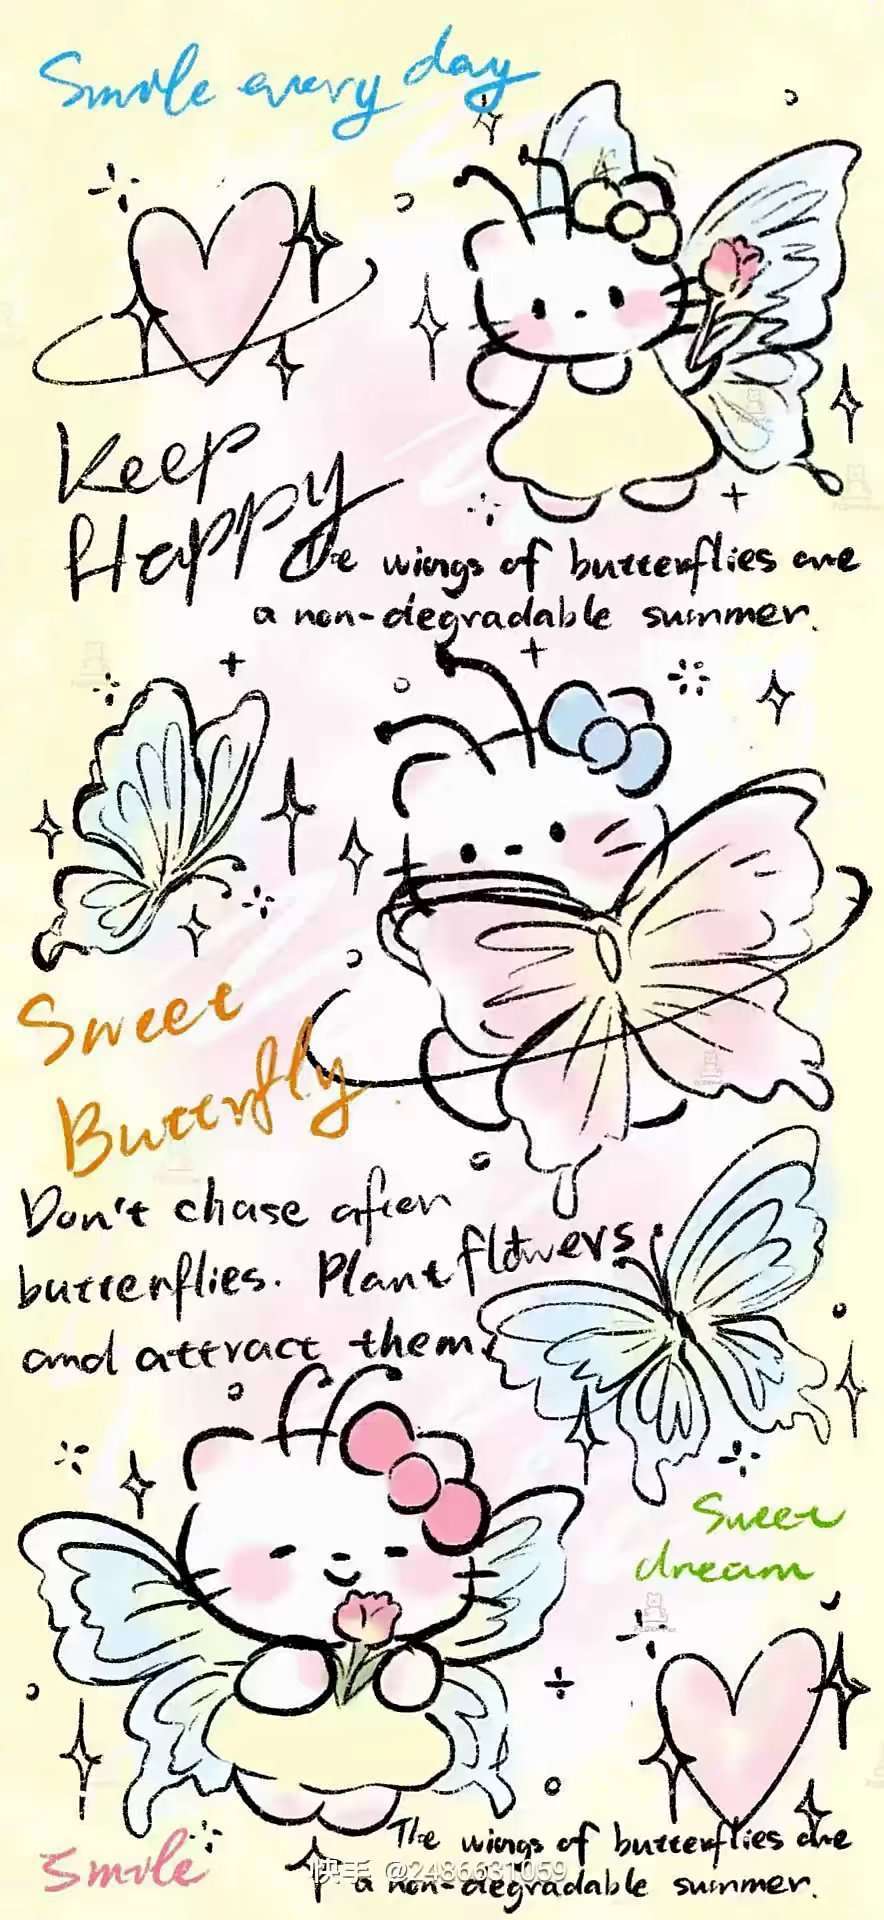 Smile every day
Keep
Happy
The wings of butterflies are
a non-degradable summer.
Sweet
Butterfly.
Don't chase after
butterflies. Plant flowers
and attract them.
Sweet
dream
The wings of butterflies are
a non-degradable summer.
Smile
快手 @2486631059